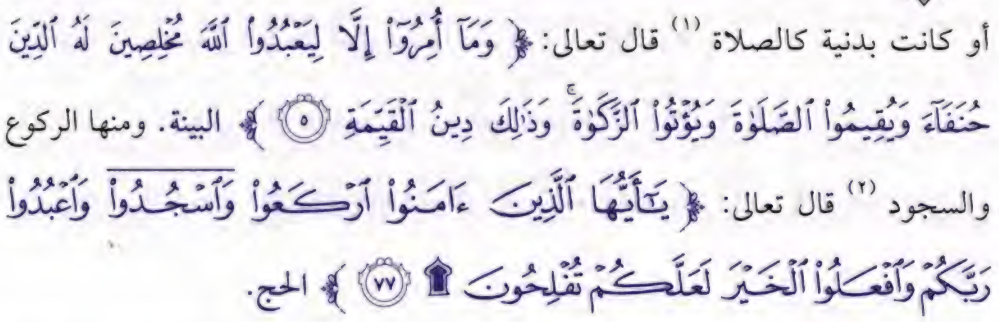 أو كانت بدنية كالصلاة (١) قال تعالى: ﴿ وَمَآ أُمِرُوٓاْ إِلَّا لِيَعۡبُدُواْ ٱللَّهَ مُخۡلِصِينَ لَهُ ٱلدِّينَ
حُنَفَآءَ وَيُقِيمُواْ ٱلصَّلَوٰةَ وَيُؤۡتُواْ ٱلزَّكَوٰةَۚ وَذَٰلِكَ دِينُ ٱلۡقَيِّمَةِ ٥ ﴾ البينة. ومنها الركوع
والسجود (٢) قال تعالى: ﴿ يَـٰٓأَيُّهَا ٱلَّذِينَ ءَامَنُواْ ٱرۡكَعُواْ وَٱسۡجُدُواْ وَٱعۡبُدُواْ
رَبَّكُمۡ وَٱفۡعَلُواْ ٱلۡخَيۡرَ لَعَلَّكُمۡ تُفۡلِحُونَ ۩ ٧٧ ﴾ الحج.